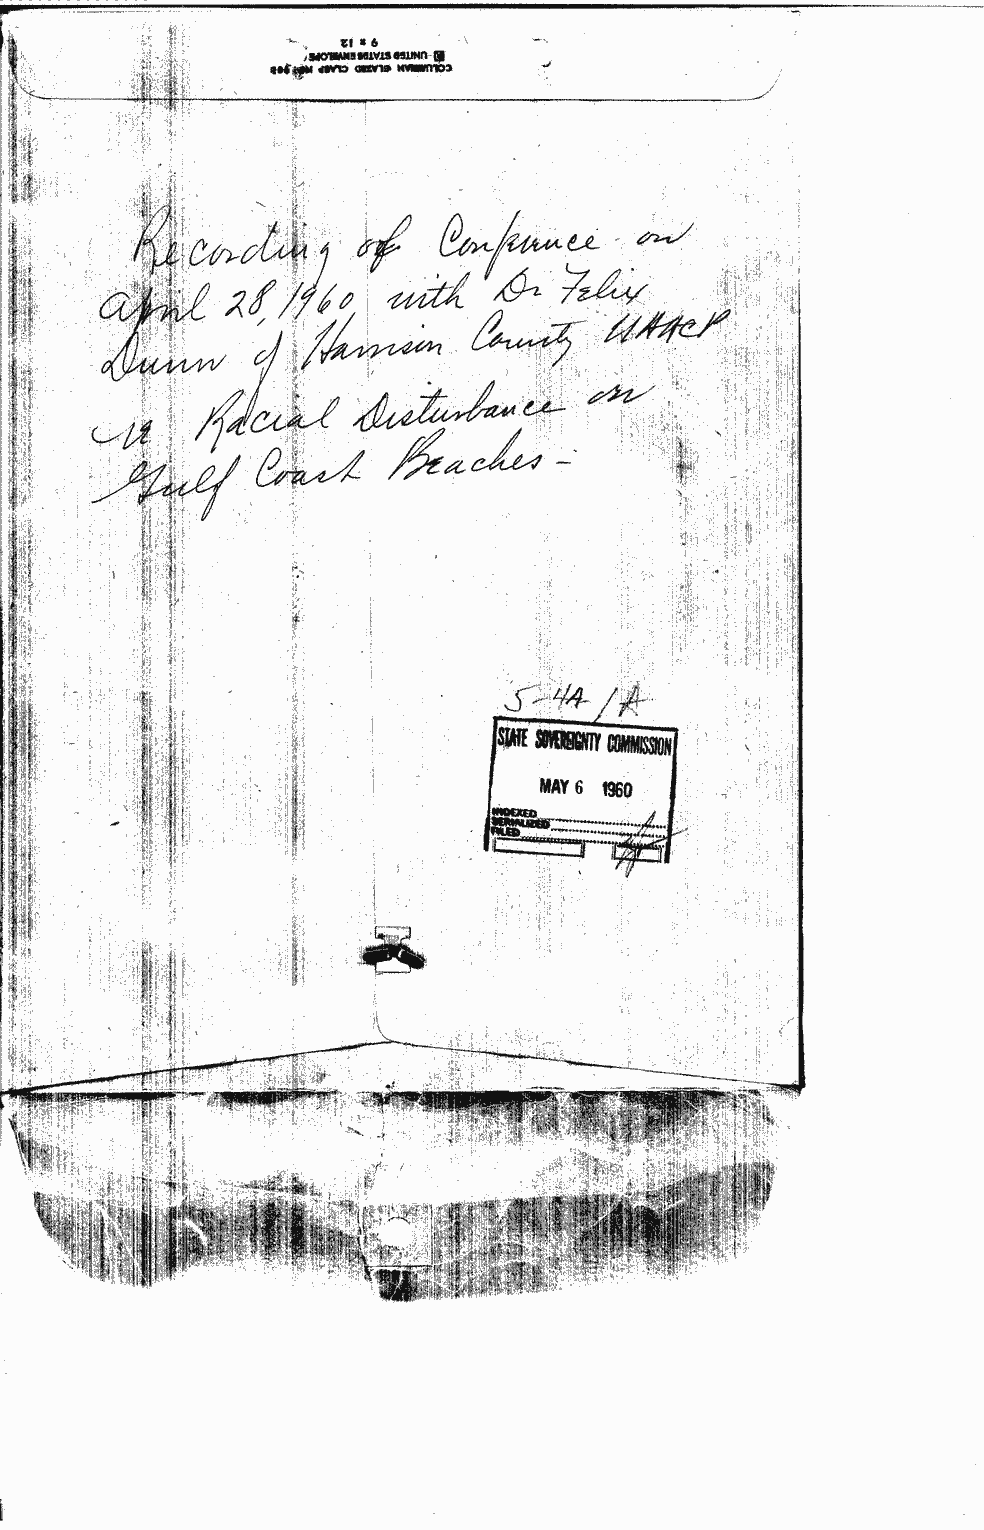 9 x 12
UNITED STATES ENVELOPE
COLUMBIAN GLAZED CLASP
Recording of Conference on
April 28, 1960 with Dr Felix
Dunn of Harrison County NAACP
re Racial Disturbance on
Gulf Coast Beaches -
5-4A /A
STATE SOVEREIGNTY COMMISSION
MAY 6 1960
INDEXED
SERIALIZED
FILED